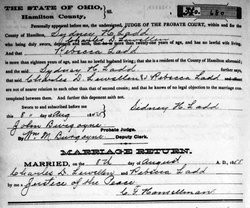 THE STATE OF OHIO,
Hamilton County,
Personally appeared before me, the undersigned, JUDGE OF THE PROBATE COURT, within and for the
County of Hamilton, Sydney H Ladd
Charles D Lewellen
who being duly sworn, deposes and that he is more than twenty-one years of age, and has no lawful wife living.
And that
Rebecca Ladd
is more than eighteen years of age, and has no lawful husband living; that she is a resident of the County of Hamilton
aforesaid, Sydney H Ladd
further says, that
Charles D Lewellen & Rebecca Ladd
are not
nearer of kin than first cousins, and that he knows of no legal objection to the marriage contem-
plated between them. And this deponent saith not.
Sworn to and subscribed before me
this 8 Aug
Sidney H Ladd
John Burgoyne
Probate Judge.
By Wm M Burgoyne Deputy Clerk.
MARRIAGE RETURN.
MARRIED, on the 8th day of August A.D.
Charles D Lewellen & Rebecca Ladd
by Justice of the Peace